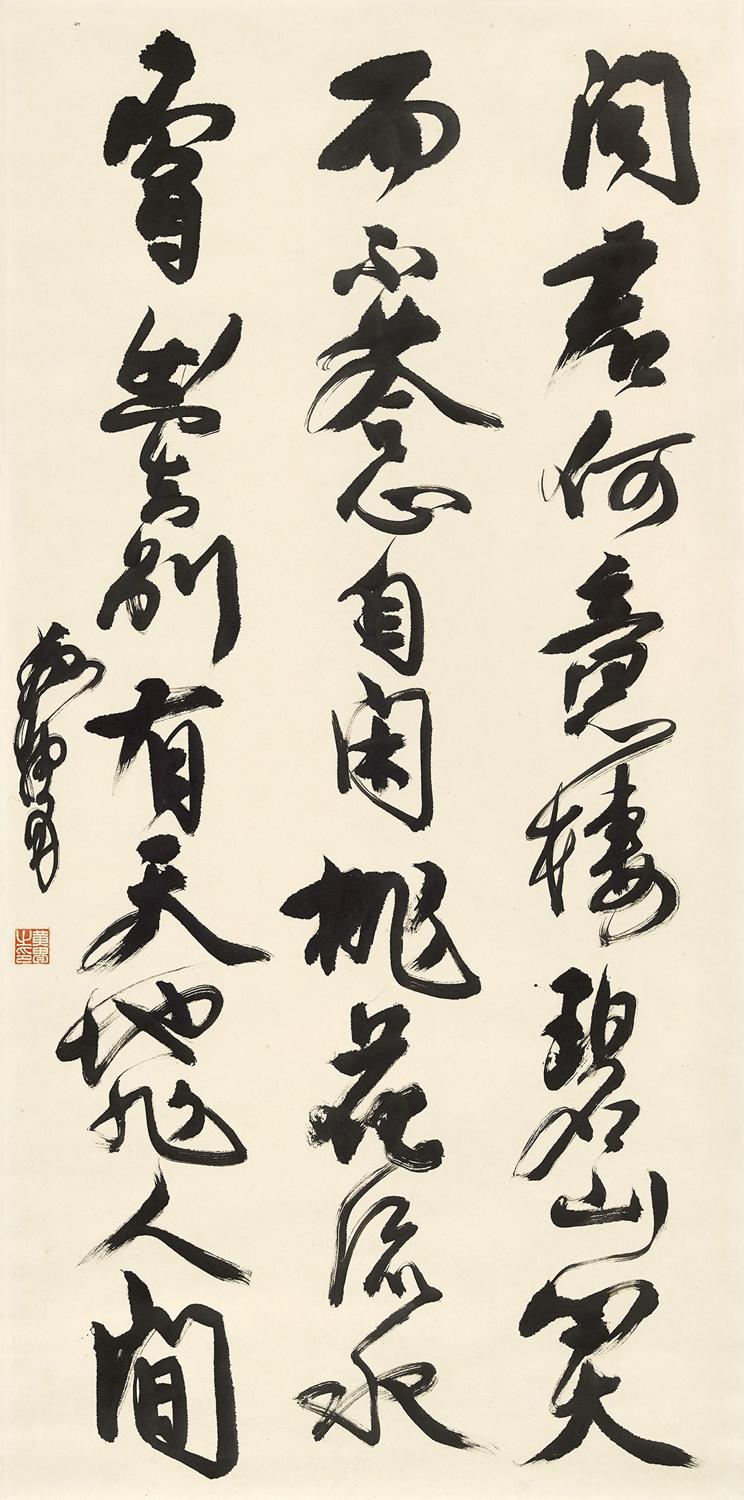 問君何意棲碧山笑
而不荅心自閑桃花流水
窅然去別有天地非人間